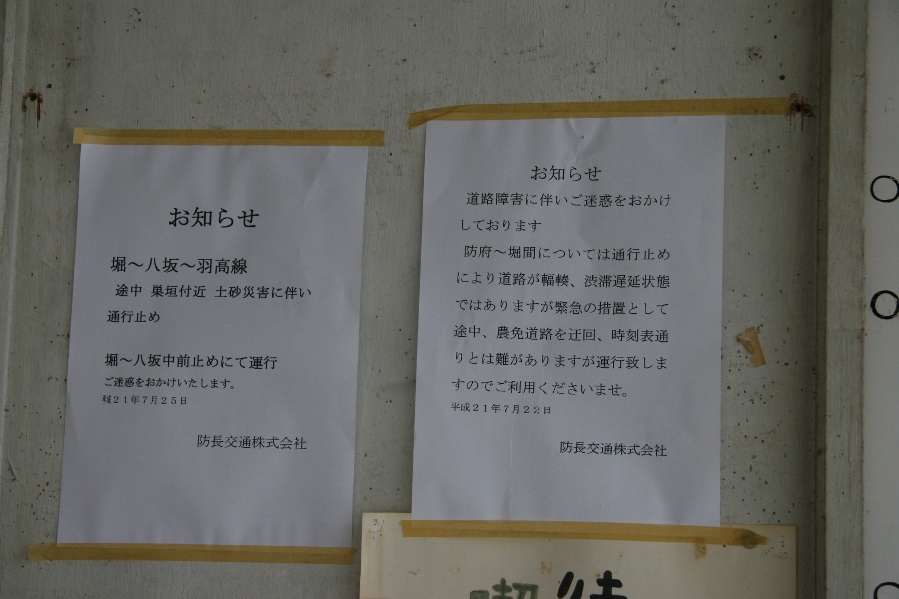 お知らせ
堀～八坂～羽高線
途中 巣垣付近 土砂災害に伴い
通行止め
堀～八坂中前止めにて運行
ご迷惑をおかけいたします。
21年7月25日
防長交通株式会社
お知らせ
道路障害に伴いご迷惑をおかけ
しております
防府～堀間については通行止め
により道路が輻輳、渋滞遅延状態
ではありますが緊急の措置として
途中、農免道路を迂回、時刻表通
りとは難がありますが運行致しま
すのでご利用くださいませ。
平成21年7月22日
防長交通株式会社